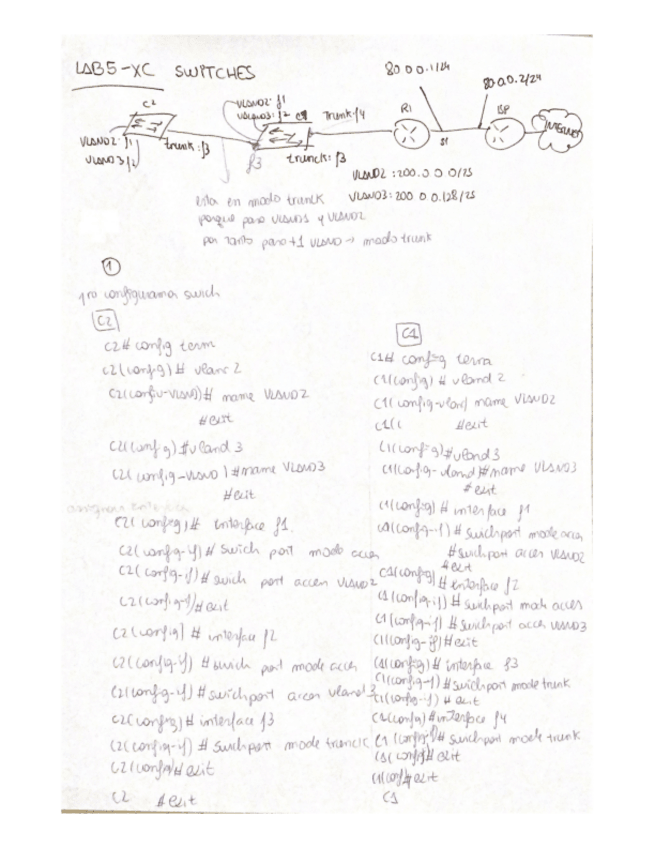 LAB5-XC SWITCHES
80.0.0.1/24
80.0.0.2/24
C2
VLAND2: f1
VLAND3: f2
C1
Trunk: f4
R1
ISP
S1
VLAND2: f1
VLAND3 f2
trunk: f3
f3
trunck: f3
VLAND2: 200.0.0.0/25
VLAND3: 200.0.0.128/25
esta en modo trunck
porque pasa VLAND1 y VLAND2
por tanto paso +1 VLAND → modo trunk
1
1ro configuramos swich
C2
C2# config term
C2(config)# vlanc 2
# name VLAND2
#exit
C2(config)#vland 3
C2(config-VLAND)#name VLAND3
#exit
C2(config)# interface f1.
C2(config-if)# swich port mode acces
C2(config-if)# swich port acces VLAND2
C2(config-if)#exit
C2(config)# interface f2
C2(config-if)# swich port mode acces
C2(config-if)#swich port acces vland 3
C2(config)# interface f3
C2(config-if)# swich port mode trunck
C2(config)#exit
C2 #exit
C1
C1# config term
C1(config)# vland 2
C1(config-vlan)name VLAND2
#exit
C1(config)#vland 3
C1(config-vland)#name VLAND3
#exit
C1(config)# interface f1
C1(config-if)# swich port mode acces
#swich port acces VLAND2
#exit
C1(config)# interface f2
C1(config-if)# swich port mode acces
C1(config-if)# swich port acces VLAND3
C1(config-if)#exit
C1(config)# interface f3
C1(config-if)#swich port mode trunk
C1(config-if)# exit
C1(config)#interface f4
C1(config-if)# swich port mode trunk
C1(config)#exit
C1(conf)#exit
C1